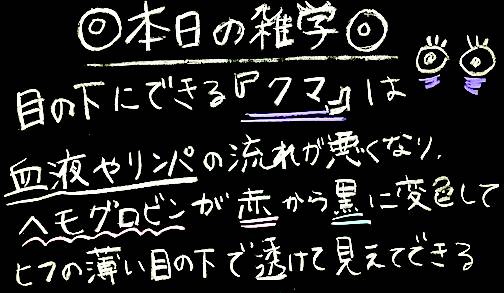 ◎本日の雑学◎
目の下にできる『クマ』は
血液やリンパの流れが悪くなり、
ヘモグロビンが赤から黒に変色して
ヒフの薄い目の下で透けて見えてできる